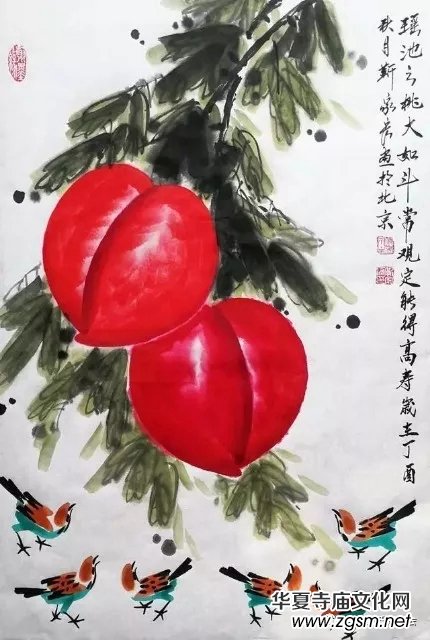 瑶池之桃大如斗常观定能得高寿岁在丁酉
秋月靳家秀画於北京
华夏寺庙文化网
www.zgsm.net